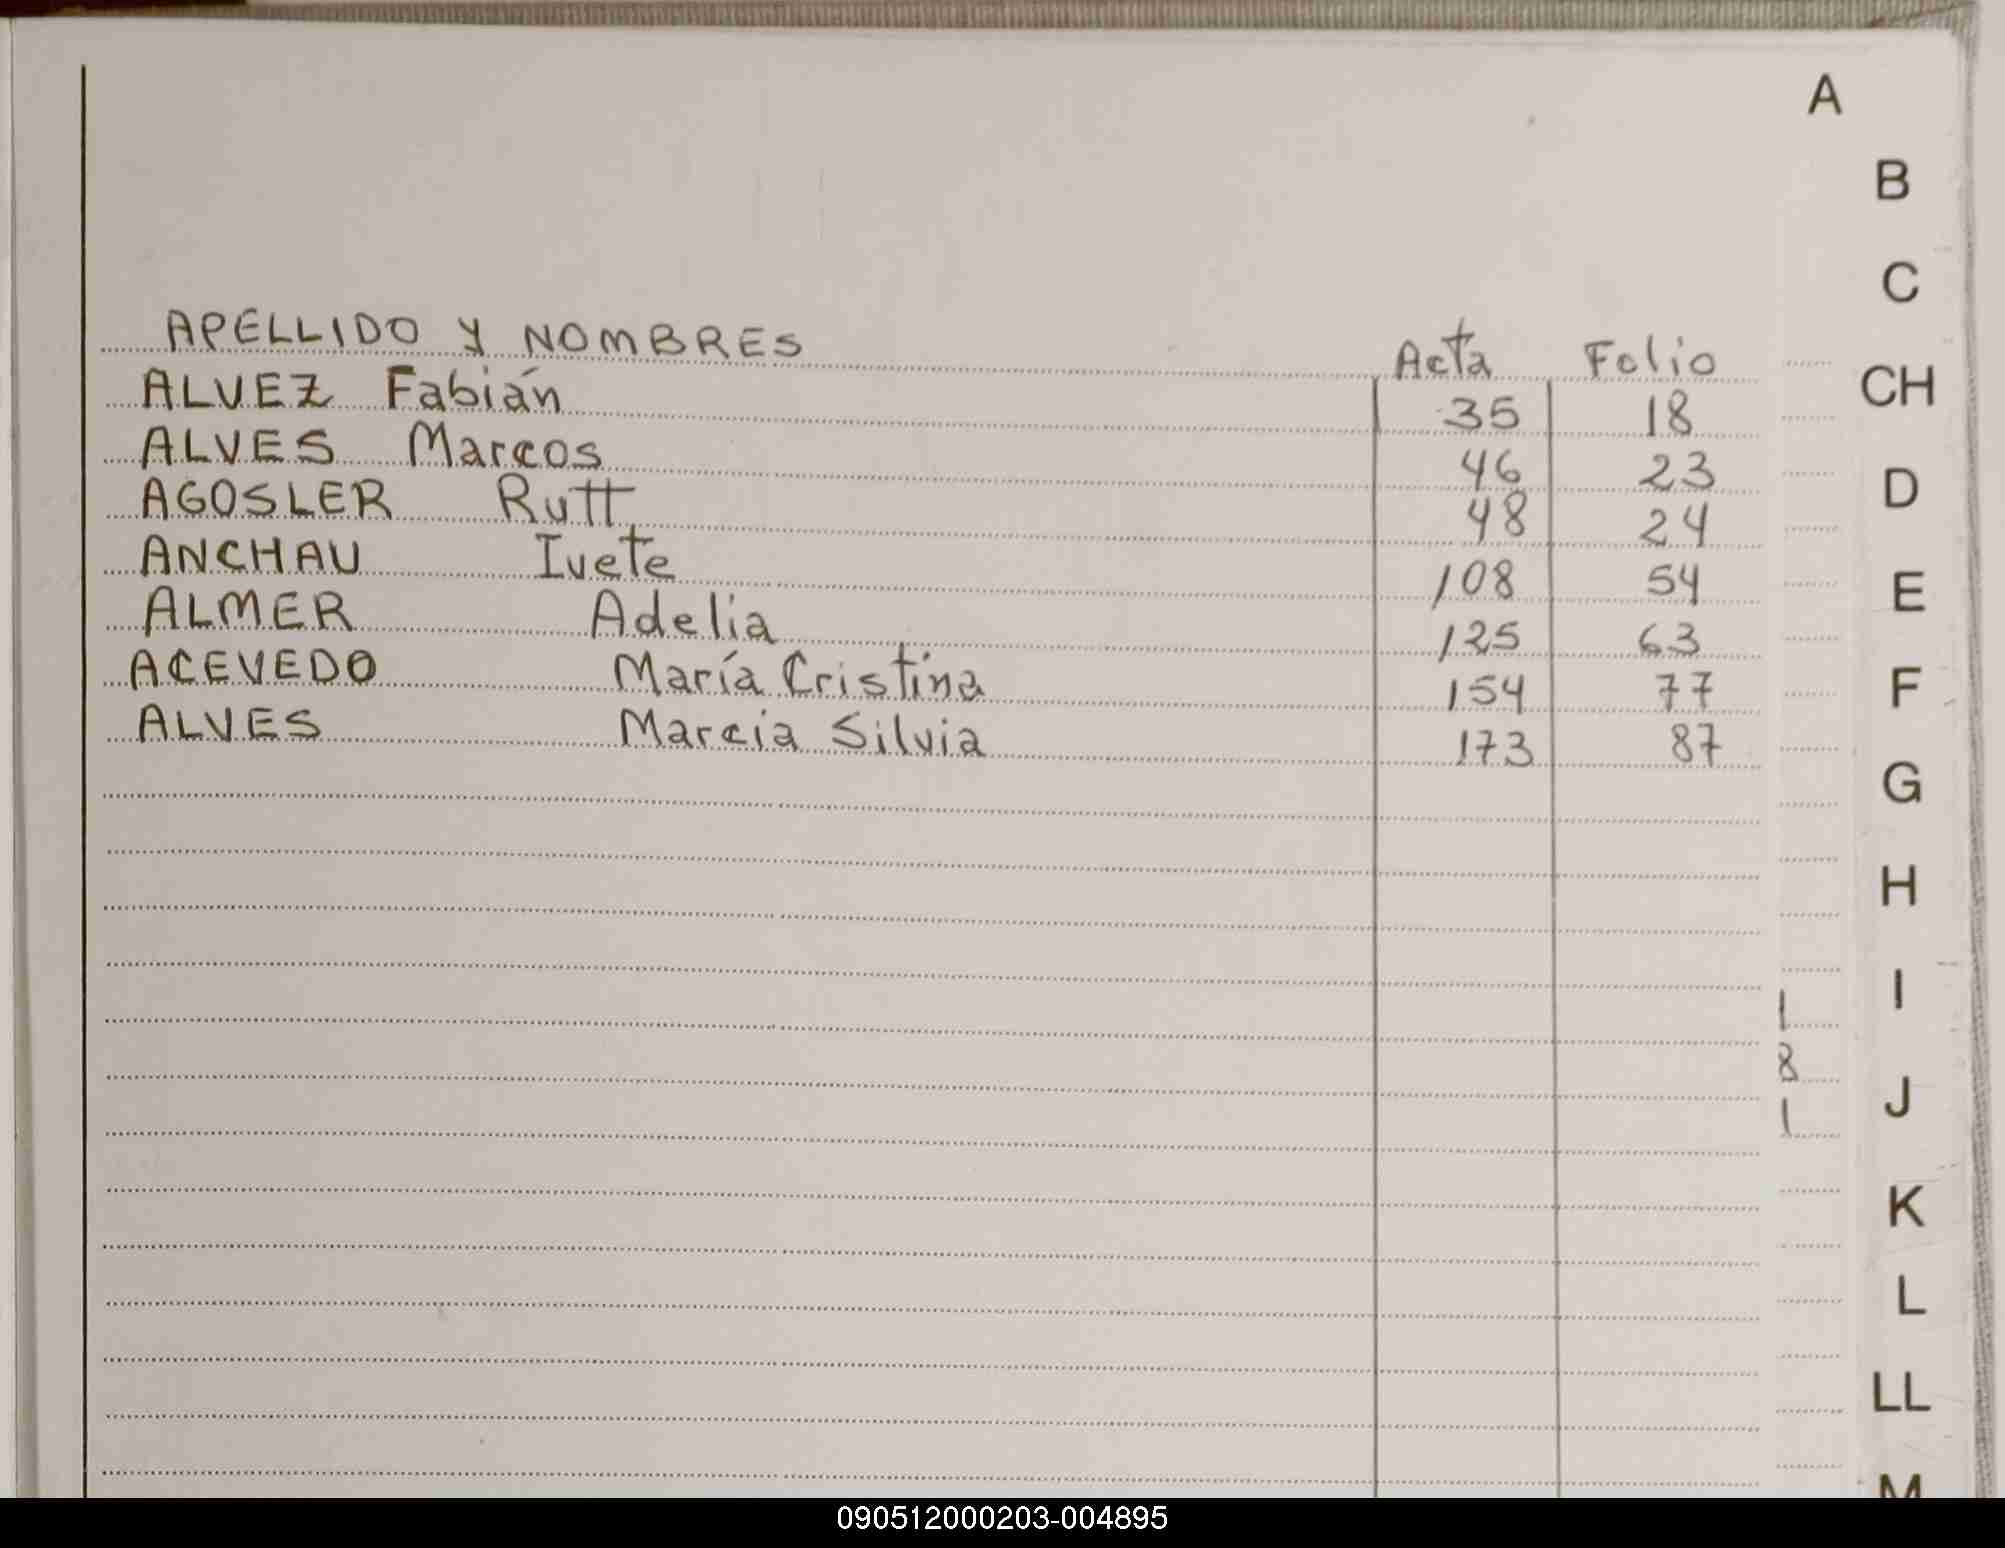 APELLIDO Y NOMBRES Acta Folio
ALVEZ Fabián 35 18
ALVES Marcos 46 23
AGOSLER Rutt 48 24
ANCHAU Ivete 108 54
ALMER Adelia 125 63
ACEVEDO María Cristina 154 77
ALVES Marcia Silvia 173 87
A
B
C
CH
D
E
F
G
H
I
J
K
L
LL
M
1
8
1
090512000203-004895